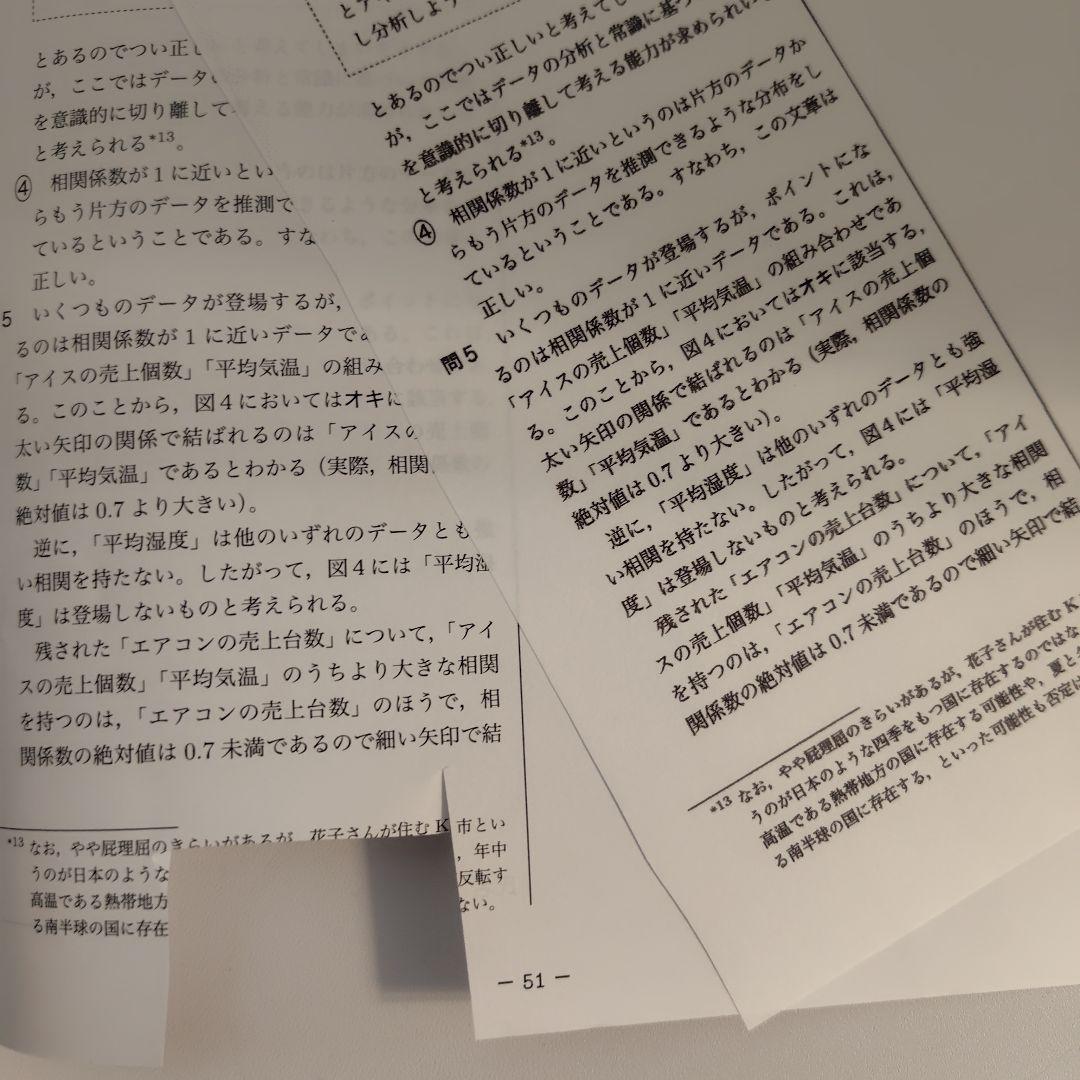 とあるのでつい正し
が，ここではデータ
を意識的に切り離して
と考えられる*13。
④ 相関係数が1に近いとい
らもう片方のデータを推測で
ているということである。すな
正しい。
5 いくつものデータが登場するが，
るのは相関係数が1に近いデータで
「アイスの売上個数」「平均気温」の組み
る。このことから，図4においてはオキに
太い矢印の関係で結ばれるのは「アイスの
数」「平均気温」であるとわかる（実際，相関
絶対値は0.7より大きい）。
逆に，「平均湿度」は他のいずれのデータとも
い相関を持たない。したがって，図4には「平均湿
度」は登場しないものと考えられる。
残された「エアコンの売上台数」について，「アイ
スの売上個数」「平均気温」のうちより大きな相関
を持つのは，「エアコンの売上台数」のほうで，相
関係数の絶対値は0.7未満であるので細い矢印で結
*13 なお，やや屁理屈のきらいがあるが，花子さんが住むK市とい
うのが日本のような
，年中
高温である熱帯地方
反転す
る南半球の国に存在
ない。
－ 51 －
し分析しよう
とあるのでつい正しいと考えて
が，ここではデータの分析と常識に基
を意識的に切り離して考える能力が求められ
と考えられる*13。
④ 相関係数が1に近いというのは片方のデータか
らもう片方のデータを推測できるような分布をし
ているということである。すなわち，この文章は
正しい。
問5 いくつものデータが登場するが，ポイントにな
るのは相関係数が1に近いデータである。これは，
「アイスの売上個数」「平均気温」の組み合わせであ
る。このことから，図4においてはオキに該当する，
太い矢印の関係で結ばれるのは「アイスの売上個
数」「平均気温」であるとわかる（実際，相関係数の
絶対値は0.7より大きい）。
逆に，「平均湿度」は他のいずれのデータとも強
い相関を持たない。したがって，図4には「平均湿
度」は登場しないものと考えられる。
残された「エアコンの売上台数」について，「アイ
スの売上個数」「平均気温」のうちより大きな相関
を持つのは，「エアコンの売上台数」のほうで，相
関係数の絶対値は0.7未満であるので細い矢印で結
*13 なお，やや屁理屈のきらいがあるが，花子さんが住むK
うのが日本のような四季をもつ国に存在するのではな
高温である熱帯地方の国に存在する可能性や，夏と
る南半球の国に存在する，といった可能性も否定